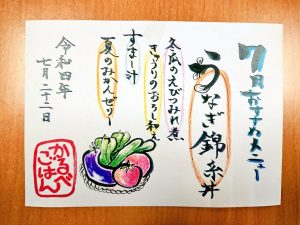 7月おすすめメニュー
うなぎ錦糸丼
冬瓜のえびつみれ煮
きゅうりのおろし和え
すまし汁
夏のみかんゼリー
令和四年
七月二十二日
かるべ
ごはん